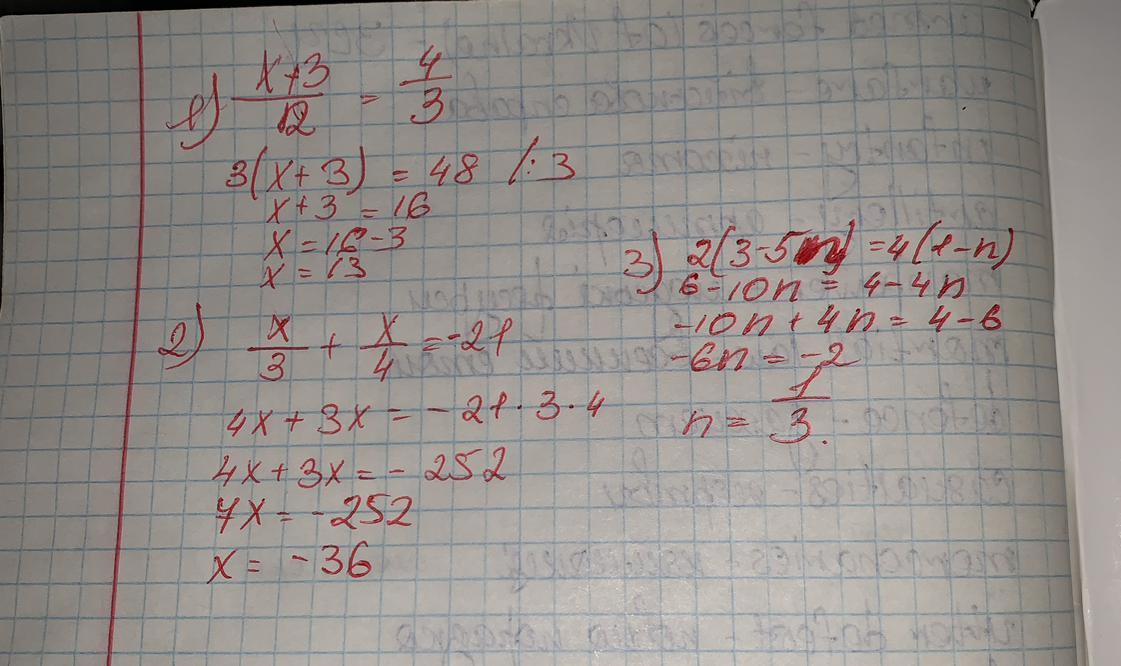 1) x+3/12 = 4/3
3(x+3) = 48 /:3
x+3 = 16
x = 16-3
x = 13
2) x/3 + x/4 = -21
4x + 3x = -21·3·4
4x + 3x = -252
7x = -252
x = -36
3) 2(3-5n) = 4(1-n)
6-10n = 4-4n
-10n + 4n = 4-6
-6n = -2
n = 1/3.